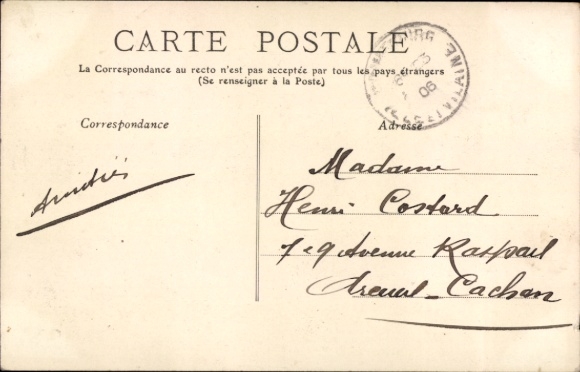 CARTE POSTALE
La Correspondance au recto n'est pas acceptée par tous les pays étrangers
(Se renseigner à la Poste)
ILLE-ET-VILAINE
06
Correspondance
Adresse
Amitiés
Madame
Henri Costard
7 & 9 Avenue Raspail
Arcueil-Cachan